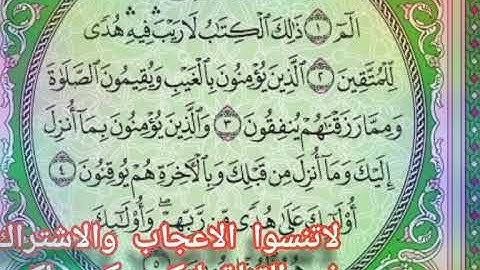 الٓمٓ ۝١ ذَٰلِكَ ٱلْكِتَٰبُ لَا رَيْبَ ۛ فِيهِ ۛ هُدًى
لِّلْمُتَّقِينَ ۝٢ ٱلَّذِينَ يُؤْمِنُونَ بِٱلْغَيْبِ وَيُقِيمُونَ ٱلصَّلَوٰةَ
وَمِمَّا رَزَقْنَٰهُمْ يُنفِقُونَ ۝٣ وَٱلَّذِينَ يُؤْمِنُونَ بِمَآ أُنزِلَ
إِلَيْكَ وَمَآ أُنزِلَ مِن قَبْلِكَ وَبِٱلْءَاخِرَةِ هُمْ يُوقِنُونَ ۝٤
أُو۟لَٰٓئِكَ عَلَىٰ هُدًى مِّن رَّبِّهِمْ ۖ وَأُو۟لَٰٓئِكَ
لاتنسوا الاعجاب والاشتراك